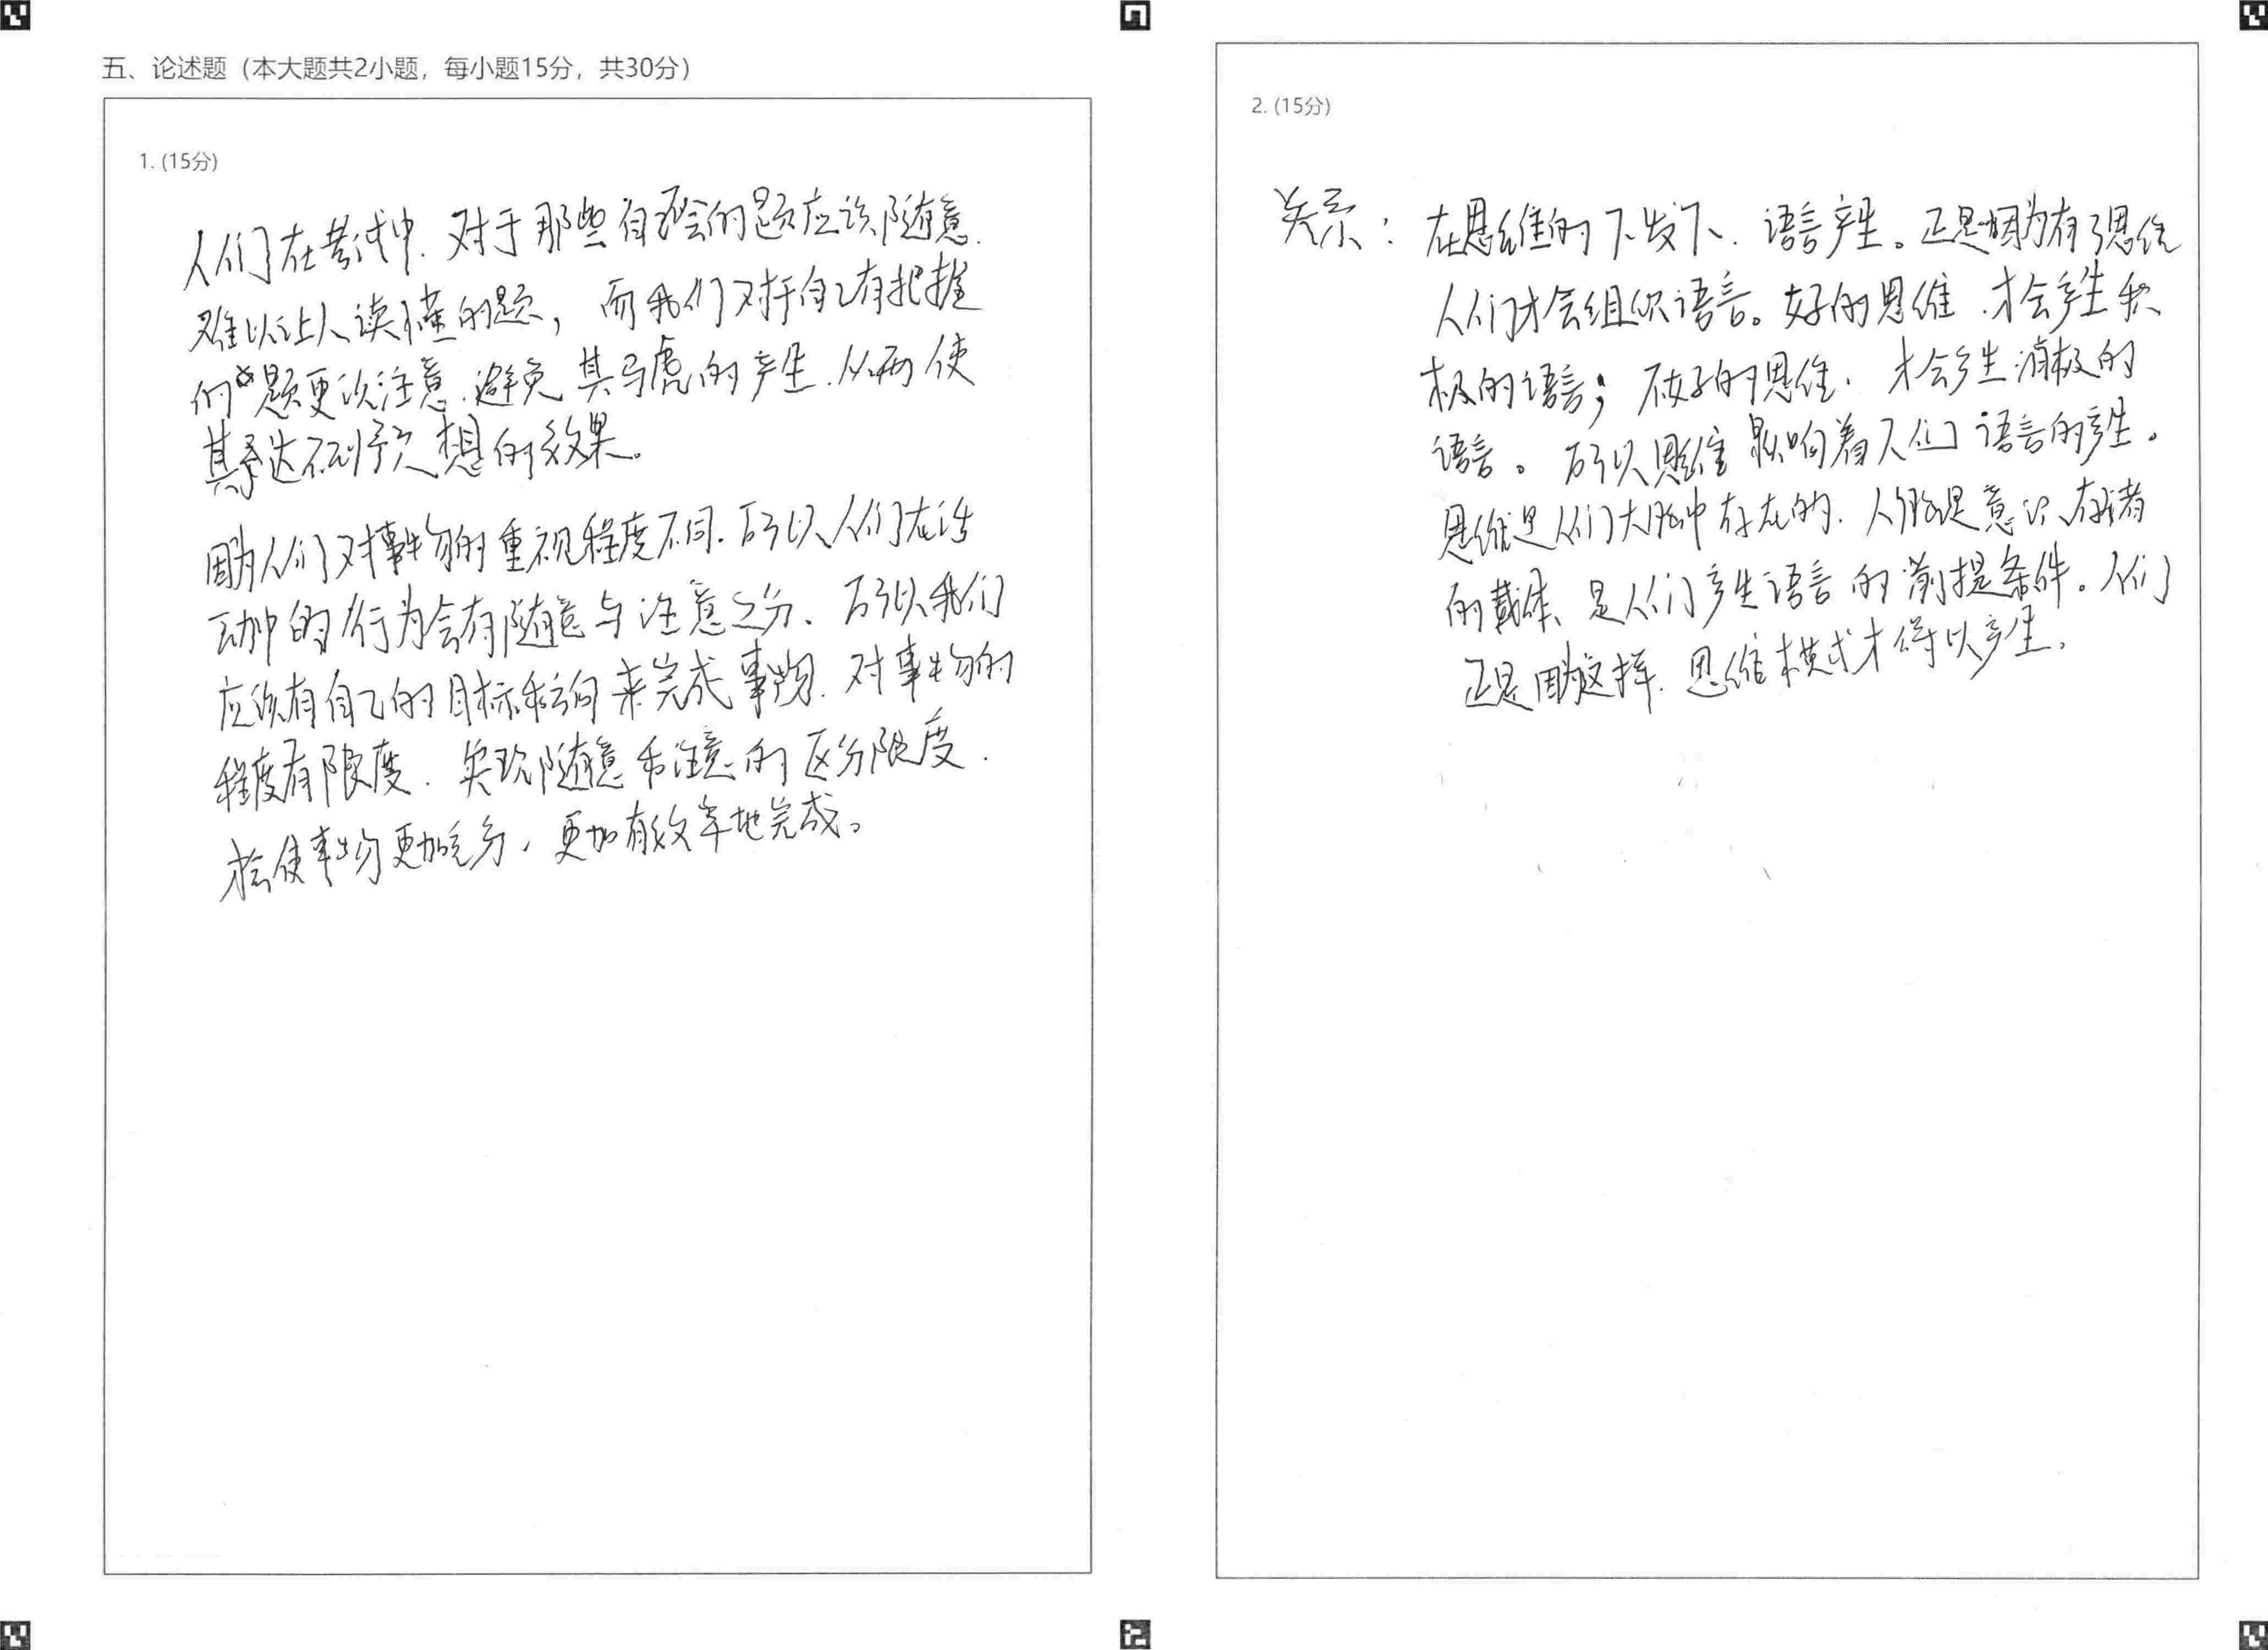 五、论述题（本大题共2小题，每小题15分，共30分）
1. (15分)
人们在考试中.对于那些自己不会的题应该随意.
难以让人读懂的题，而我们对于自己有把握
的题更次注意.避免其马虎的产生.从而使
其达不到预想的效果。
因为人们对事物的重视程度不同.所以人们在活
动中的行为会有随意与注意之分、所以我们
应该有自己的目标和方向来完成事物.对事物的
程度有限度.实现随意和注意的区分限度.
才会使事物更加充分，更加有效率地完成。
2. (15分)
关系：在思维的下发下、语言产生。正是因为有了思维
人们才会组织语言。好的思维.才会产生积
极的语言；不好的思维.才会产生消极的
语言。所以思维影响着人们语言的产生。
思维是人们大脑中存在的.人脑是意识存者
的载体、是人们产生语言的前提条件。人们
正是因为这样.思维模式才得以产生.